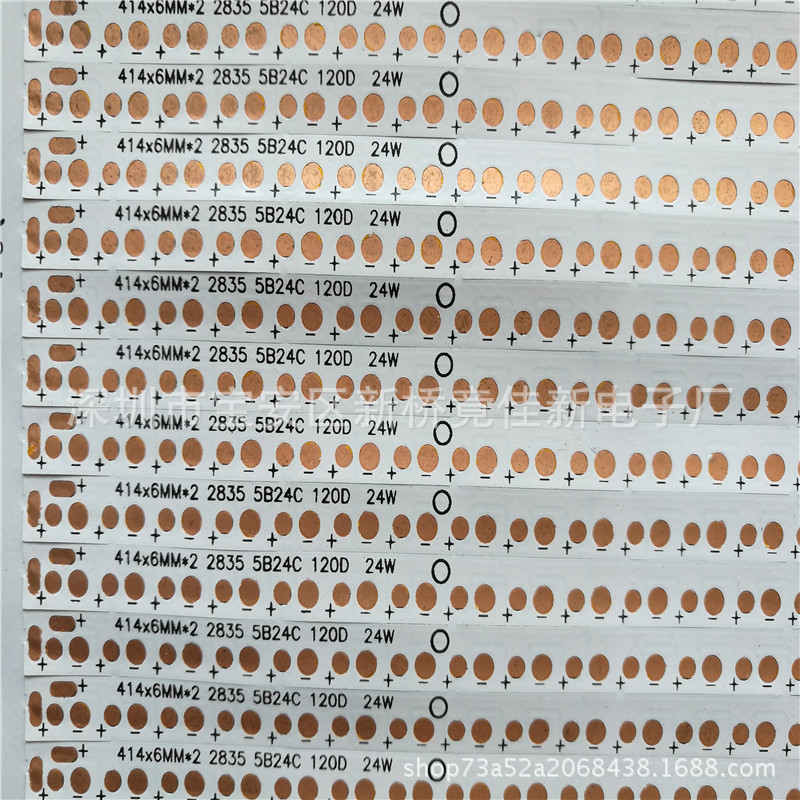 414x6MM*2 2835 5B24C 120D 24W
414x6MM*2 2835 5B24C 120D 24W
414x6MM*2 2835 5B24C 120D 24W
414x6MM*2 2835 5B24C 120D 24W
414x6MM*2 2835 5B24C 120D 24W
414x6MM*2 2835 5B24C 120D 24W
深圳市宝安区新桥竟佳新电子厂
414x6MM*2 2835 5B24C 120D 24W
414x6MM*2 2835 5B24C 120D 24W
414x6MM*2 2835 5B24C 120D 24W
414x6MM*2 2835 5B24C 120D 24W
414x6MM*2 2835 5B24C 120D 24W
414x6MM*2 2835 5B24C 120D 24W
shop73a52a2068438.1688.com